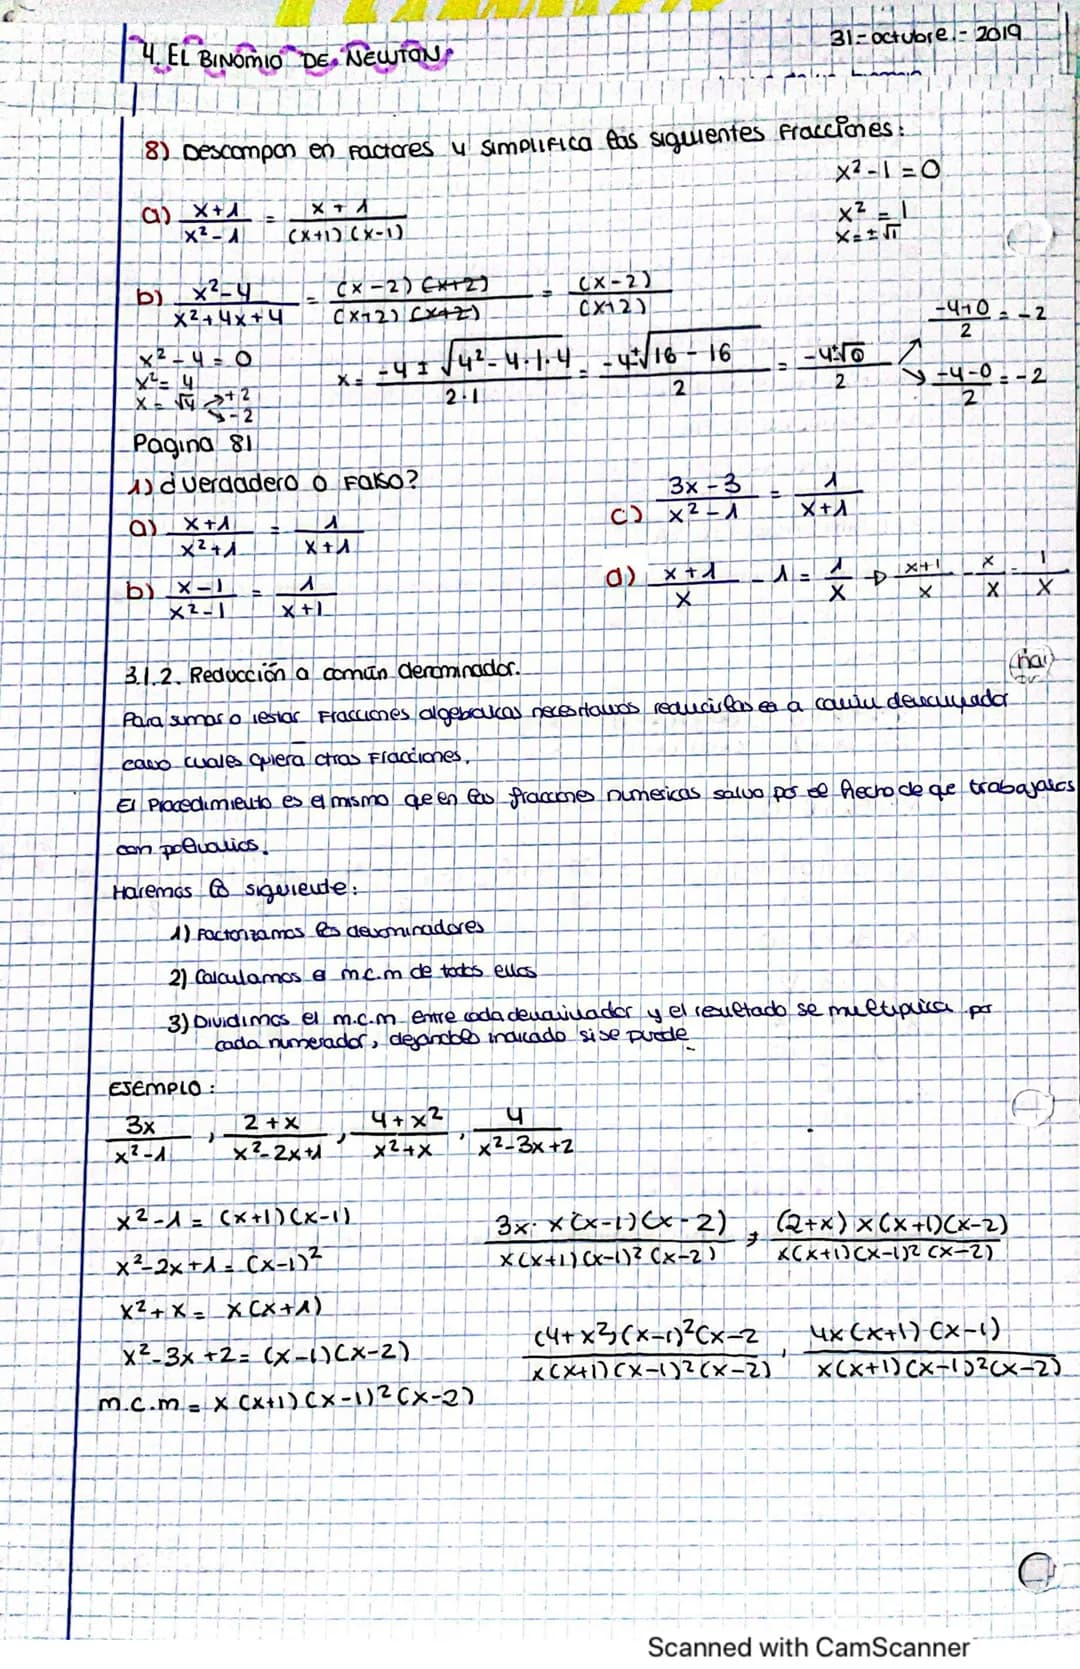 31-octubre.- 2019
4. EL BINOMIO DE NEWTON
8) Descompon en Factores y simplifica las siguientes Fracciones:
x²-1=0
x² = 1
x=±√1
a) x+1/x²-1 = x+1/(x+1)(x-1)
b) x²-4/x²+4x+4 = (x-2)(x+2)/(x+2)(x+2) = (x-2)/(x+2)
x²-4=0
x²=4
x=√4 → +2
→ -2
x= -4±√4²-4·1·4/2·1 = -4±√16-16/2 = -4±√0/2
-4+0/2 = -2
-4-0/2 = -2
Página 81
1) ¿Verdadero o Falso?
a) x+1/x²+1 = 1/x+1
b) x-1/x²-1 = 1/x+1
c) 3x-3/x²-1 = 1/x+1
d) x+1/x - 1 = 1/x → x+1/x - x/x = 1/x
3.1.2. Reducción a común denominador.
Para sumar o restar Fracciones algebraicas necesitamos reducirlas a común denominador
como cuales quiera otras Fracciones.
El Procedimiento es el mismo que en las fracciones numericas salvo por el hecho de que trabajamos
con polinomios.
Haremos lo siguiente:
1) Factorizamos los denominadores
2) Calculamos el m.c.m de todos ellos
3) Dividimos el m.c.m entre cada denominador y el resultado se multiplica por
cada numerador, dejandolo indicado si se puede.
EJEMPLO:
3x/x²-1 , 2+x/x²-2x+1 , 4+x²/x²+x , 4/x²-3x+2
x²-1 = (x+1)(x-1)
x²-2x+1 = (x-1)²
x²+x = x(x+1)
x²-3x+2 = (x-1)(x-2)
m.c.m = x(x+1)(x-1)²(x-2)
3x·x(x-1)(x-2)/x(x+1)(x-1)²(x-2) , (2+x)x(x+1)(x-2)/x(x+1)(x-1)²(x-2)
(4+x²)(x-1)²(x-2/x(x+1)(x-1)²(x-2) , 4x(x+1)(x-1)/x(x+1)(x-1)²(x-2)
Scanned with CamScanner